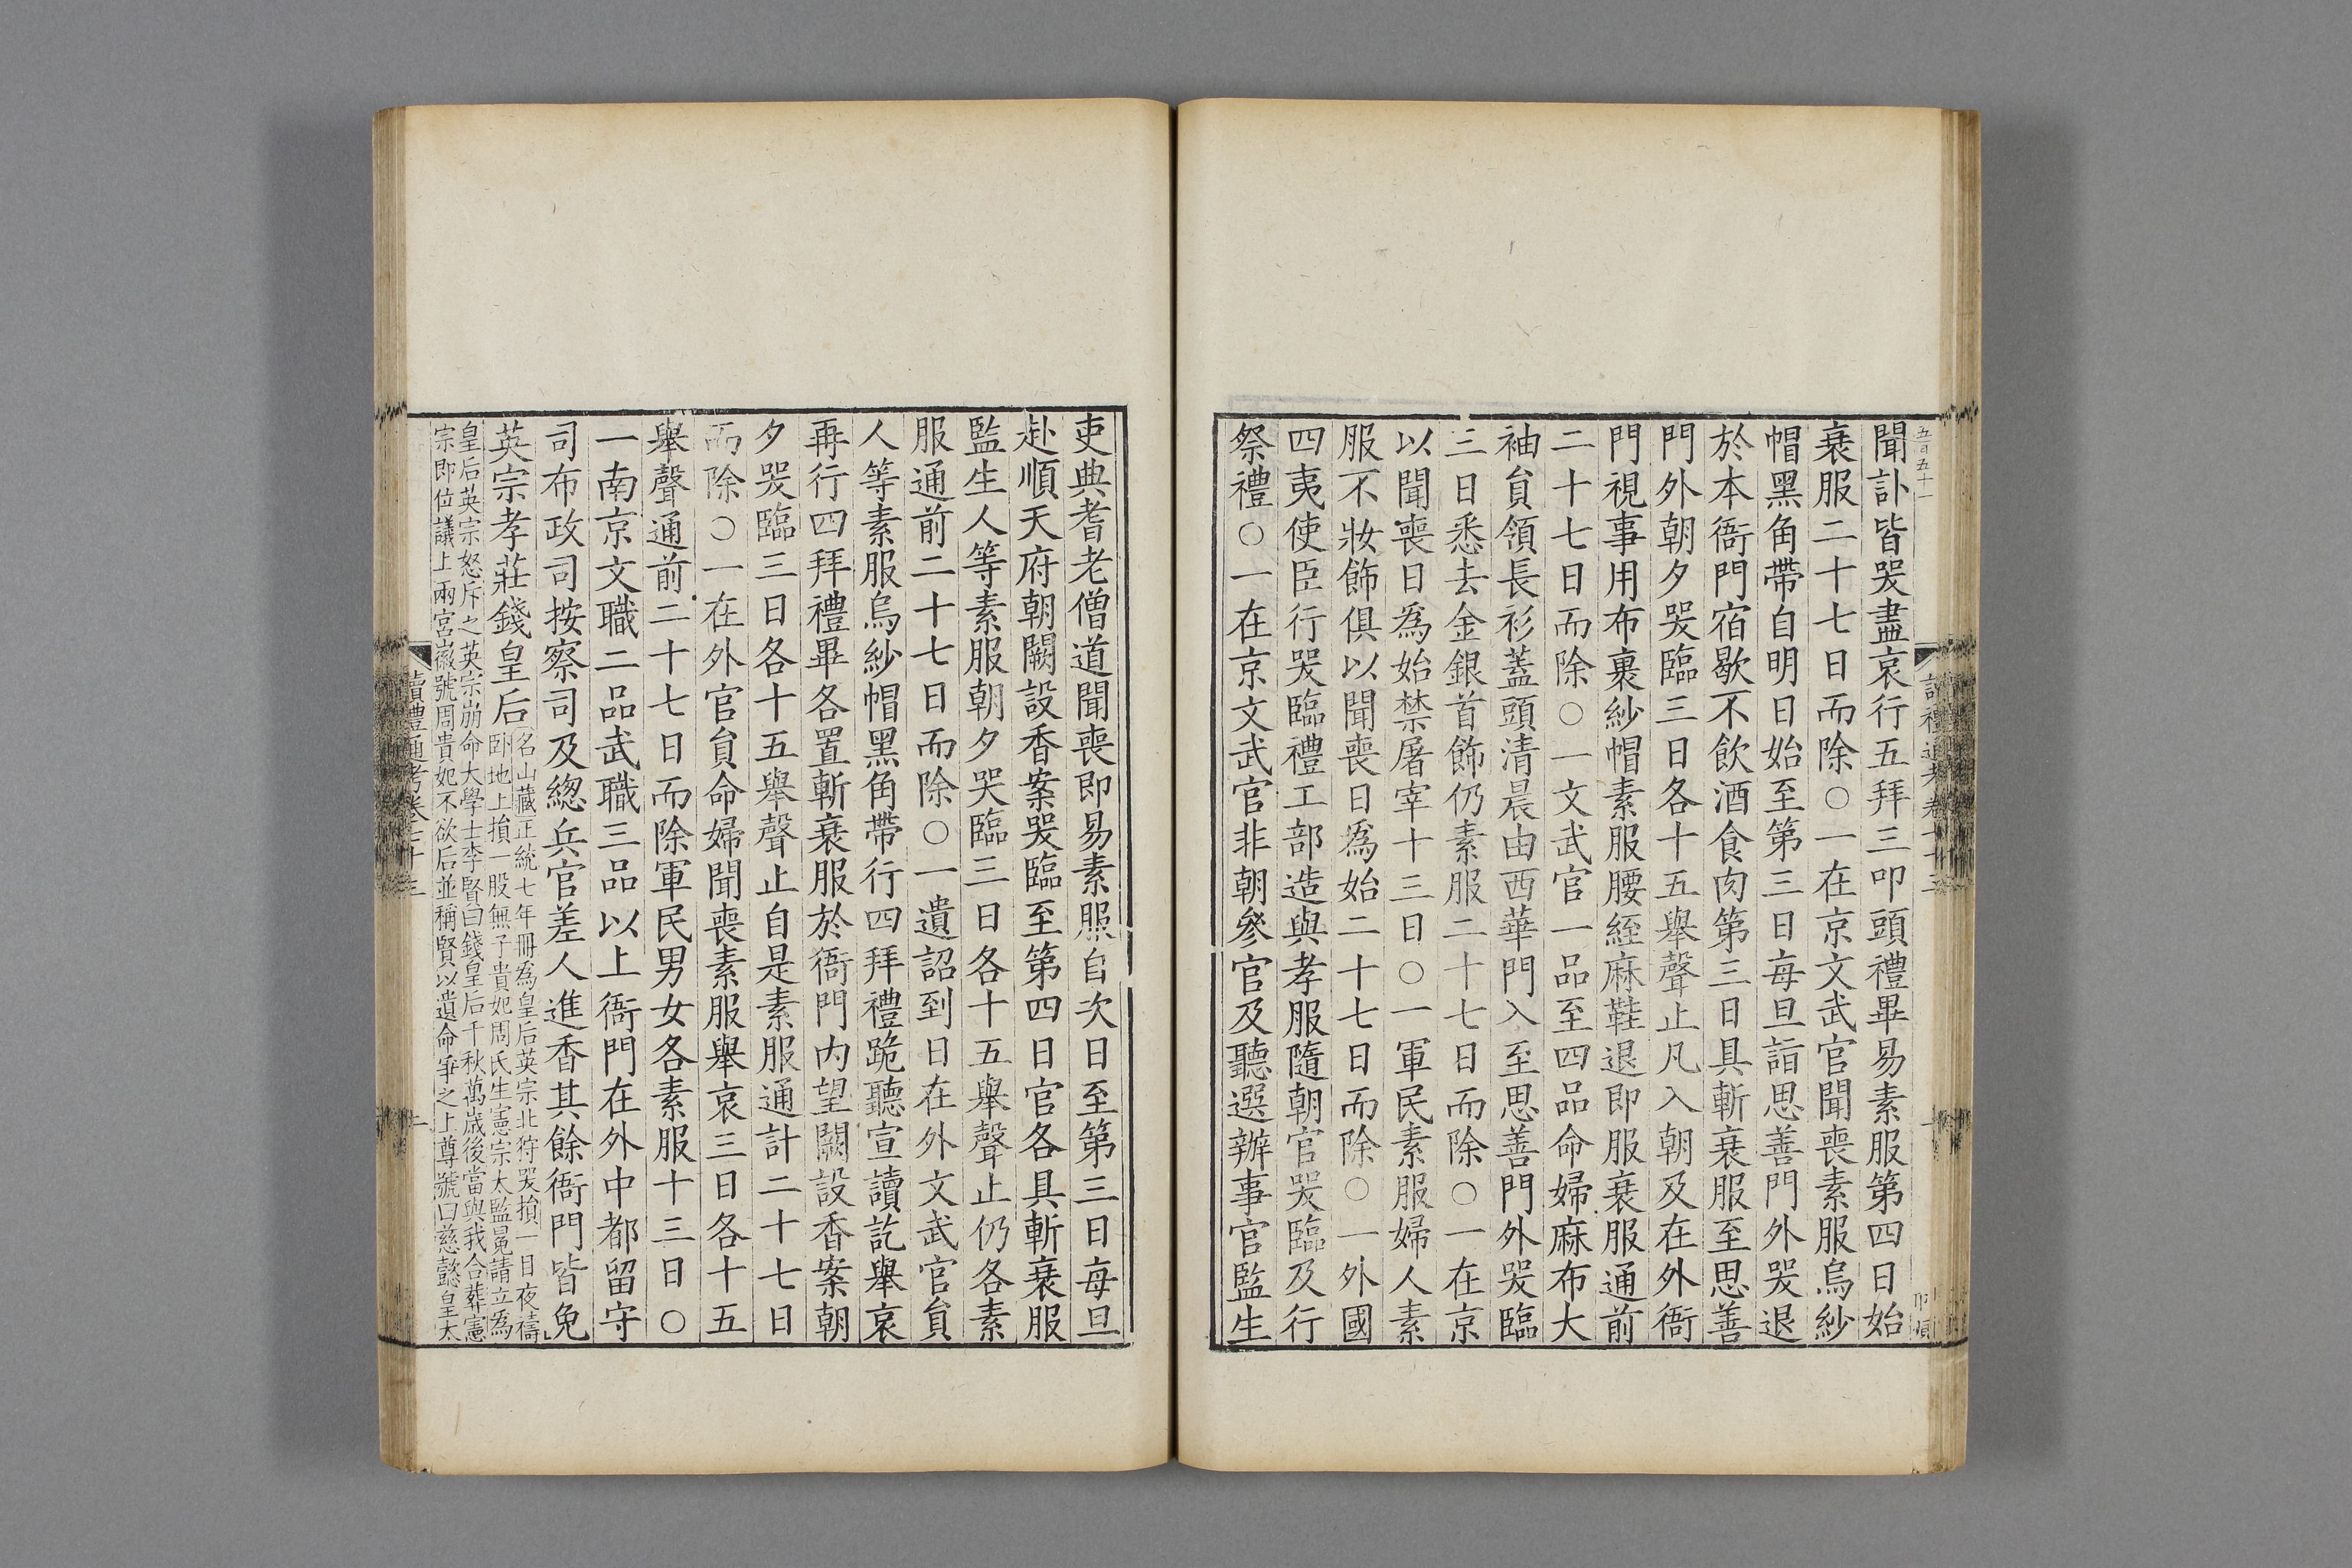 聞訃皆哭盡哀行五拜三叩頭禮畢易素服第四日始
衰服二十七日而除○一在京文武官聞喪素服烏紗
帽黑角帶自明日始至第三日每旦詣思善門外哭退
於本衙門宿歇不飲酒食肉第三日具斬衰服至思善
門外朝夕哭臨三日各十五舉聲止凡入朝及在外衙
門視事用布裹紗帽素服腰絰麻鞋退即服衰服通前
二十七日而除○一文武官一品至四品命婦麻布大
袖貟領長衫蓋頭清晨由西華門入至思善門外哭臨
三日悉去金銀首飾仍素服二十七日而除○一在京
以聞喪日為始禁屠宰十三日○一軍民素服婦人素
服不妝飾俱以聞喪日為始二十七日而除○一外國
四夷使臣行哭臨禮工部造與孝服隨朝官哭臨及行
祭禮○一在京文武官非朝叅官及聽選辦事官監生
吏典耆老僧道聞喪即易素服自次日至第三日每旦
赴順天府朝闕設香案哭臨至第四日官各具斬衰服
監生人等素服朝夕哭臨三日各十五舉聲止仍各素
服通前二十七日而除○一遺詔到日在外文武官貟
人等素服烏紗帽黑角帶行四拜禮跪聽宣讀訖舉哀
再行四拜禮畢各置斬衰服於衙門内望闕設香案朝
夕哭臨三日各十五舉聲止自是素服通計二十七日
而除○一在外官貟命婦聞喪素服舉哀三日各十五
舉聲通前二十七日而除軍民男女各素服十三日○
一南京文職二品武職三品以上衙門在外中都留守
司布政司按察司及緫兵官差人進香其餘衙門皆免
英宗孝莊錢皇后
名山藏正統七年冊為皇后英宗北狩哭損一目夜禱
卧地上損一股無子貴妃周氏生憲宗太監晃請立為
皇后英宗怒斥之英宗崩命大學士李賢曰錢皇后千秋萬歲後當與我合葬憲
宗即位議上兩宮徽號周貴妃不欲后並稱賢以遺命爭之上尊號曰慈懿皇太
讀禮通考卷七十三